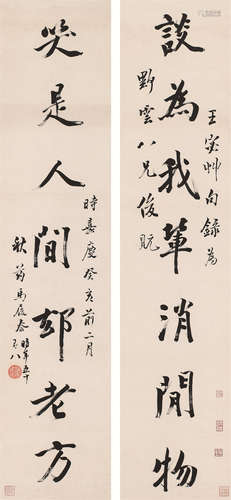 王宓艸句錄為
談為我輩消閒物
野雲八兄俊玩
笑是人間却老方
時嘉慶癸亥前二月
秋葯馬履泰時年五十
有八